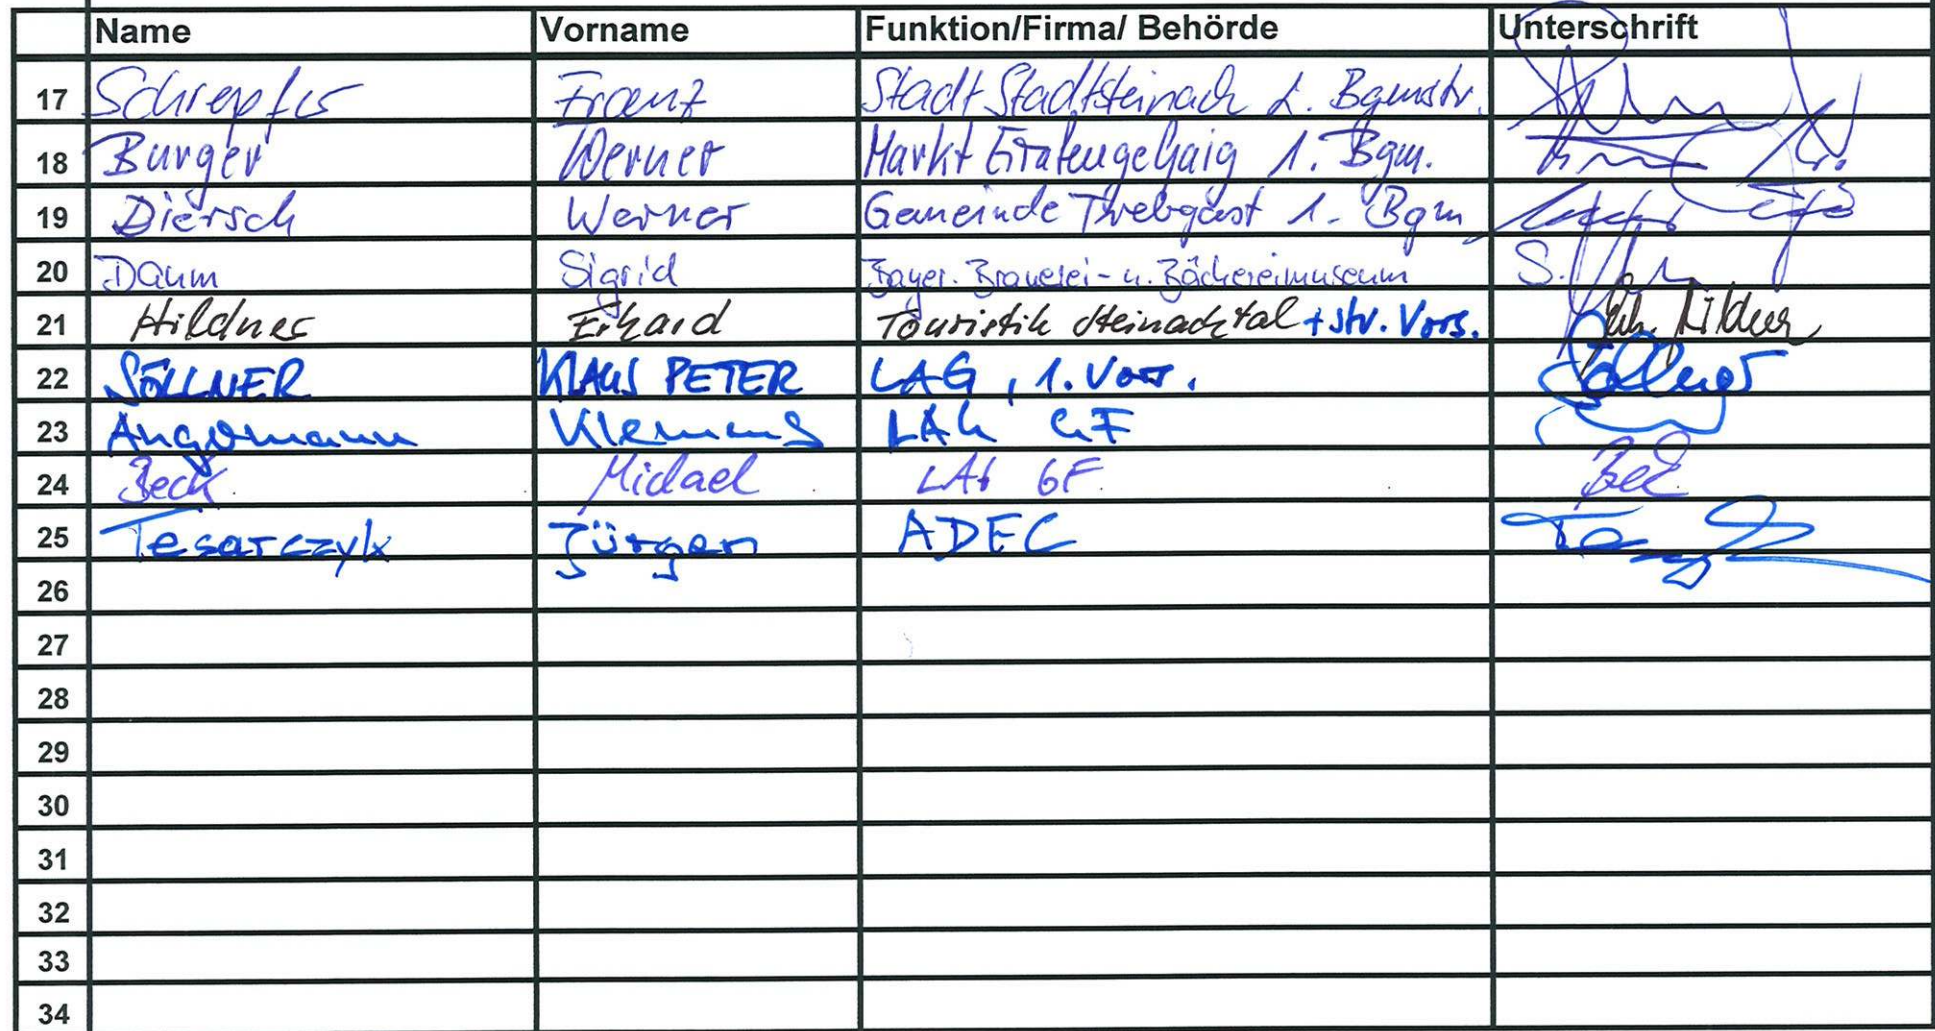 Name Vorname Funktion/Firma/ Behörde Unterschrift
17 Schrepfer Franz Stadt Stadtsteinach 2. Bgmstr.
18 Burger Werner Markt Grafengehaig 1. Bgm.
19 Diersch Werner Gemeinde Trebgast 1. Bgm
20 Daum Sigrid Bayer. Brauerei- u. Bäckereimuseum S.
21 Hildner Erhard Touristik Steinachtal + stv. Vors. Hildner
22 SÖLLNER KLAUS PETER LAG, 1. Vors. Söllner
23 Angermann Klemens LAG GF
24 Beck Michael LAG GF Beck
25 Tesarczyk Jürgen ADEC
26
27
28
29
30
31
32
33
34